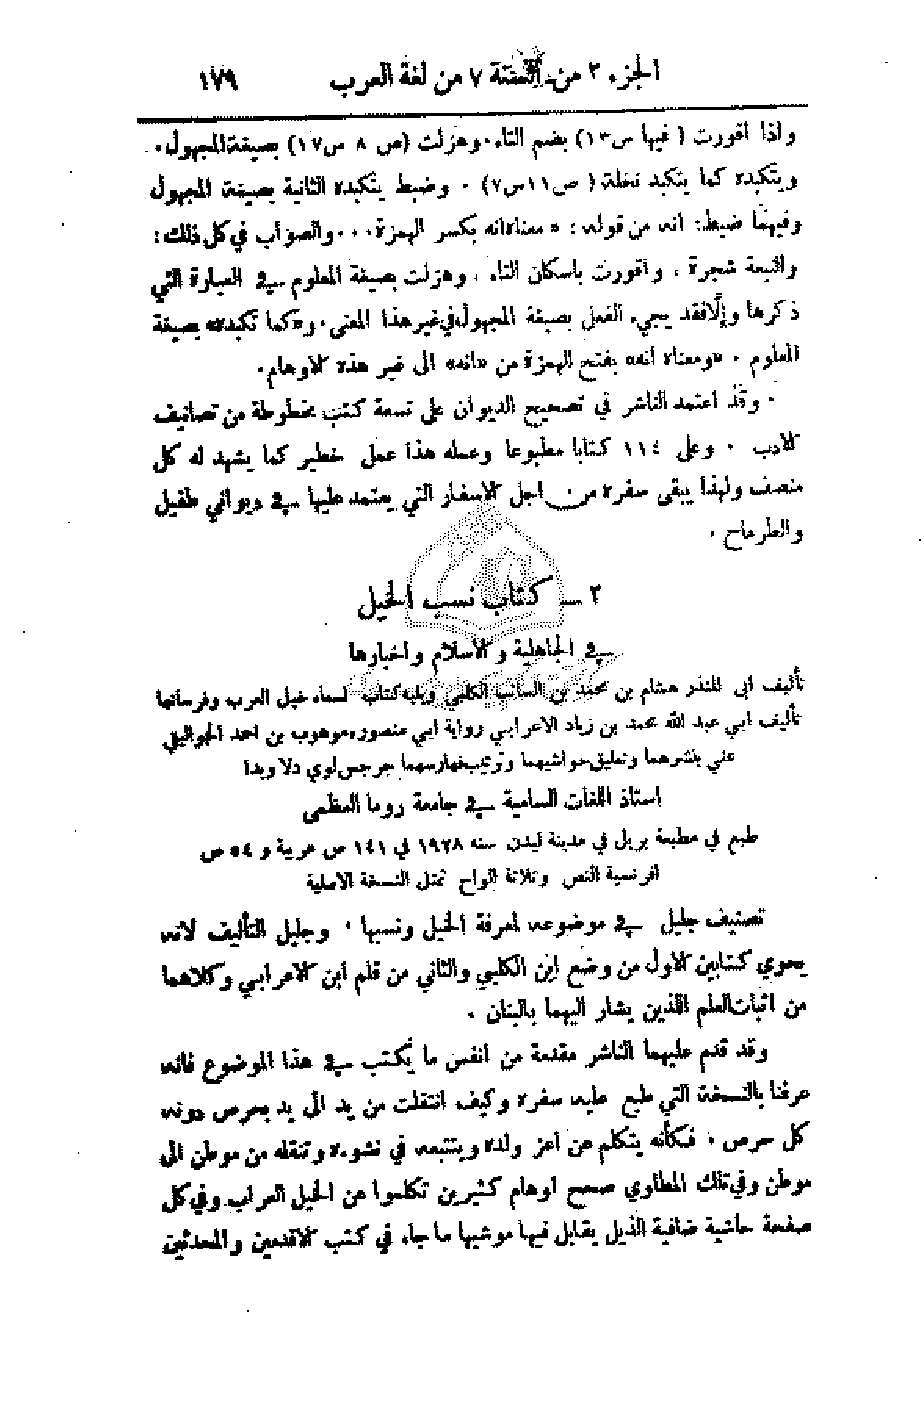 الجزء ٢ من السنة ٧ من لغة العرب ١٧٩
واذا اقورت ( فيها س١٣) بضم التاء. وهزلت (ص ٨ س١٧) بصيغة المجهول.
ويتكبده كما يتكبد نخلة ( ص١١س٧) . وضبط يتكبده الثانية بصيغة المجهول
وفيهما ضبط: انه من قوله : « معناه انه بكسر الهمزة ... والصواب في كل ذلك :
والنبعة شجرة . واقورت باسكان التاء . وهزلت بصيغة المعلوم في العبارة التي
ذكرها وإلّا فقد يجيء الفعل بصيغة المجهول في غير هذا المعنى . و«كما تكبده» بصيغة
المعلوم . «ومعناه انه» بفتح الهمزة من «انه» الى غير هذه الاوهام.
وقد اعتمد الناشر في تصحيح الديوان على تسعة كتب مخطوطة من تصانيف
الادب . وعلى ١١٤ كتابا مطبوعا وعمله هذا عمل خطير كما يشهد له كل
منصف ولهذا يبقى سفره من اجل الاسفار التي يعتمد عليها في ديواني طفيل
والطرماح .
٢ ــ كتاب نسب الخيل
في الجاهلية والاسلام واخبارها
تأليف ابي المنذر هشام بن محمد بن السائب الكلبي ويليه كتاب اسماء خيل العرب وفرسانها
تأليف ابي عبد الله محمد بن زياد الاعرابي رواية ابي منصور موهوب بن احمد الجواليقي
عني بنشرهما وتعليق حواشيهما وترتيب فهارسهما جرجس لوي دلا ويدا
استاذ اللغات السامية في جامعة روما العظمى
طبع في مطبعة بريل في مدينة ليدن سنة ١٩٢٨ في ١٤١ ص عربية و ٥٤ ص
افرنسية النص وثلاثة الواح تمثل النسخة الاصلية
تصنيف جليل في موضوعه لمعرفة الخيل ونسبها . وجليل التأليف لانه
يحوي كتابين الاول من وضع ابن الكلبي والثاني من قلم ابن الاعرابي وكلاهما
من اثبات العلم اللذين يشار اليهما بالبنان .
وقد قدم عليهما الناشر مقدمة من انفس ما يُكتب في هذا الموضوع فانه
عرفنا بالنسخة التي طبع عليه سفره وكيف انتقلت من يد الى يد بحرص دونه
كل حرص . فكأنه يتكلم عن اعز ولده ويتتبعه في نشوءه وتنقله من موطن الى
موطن وفي تلك المطاوي صحح اوهام كثيرين تكلموا عن الخيل العراب. وفي كل
صفحة حاشية ضافية الذيل يقابل فيها موشيها ما جاء في كتب الاقدمين والمحدثين